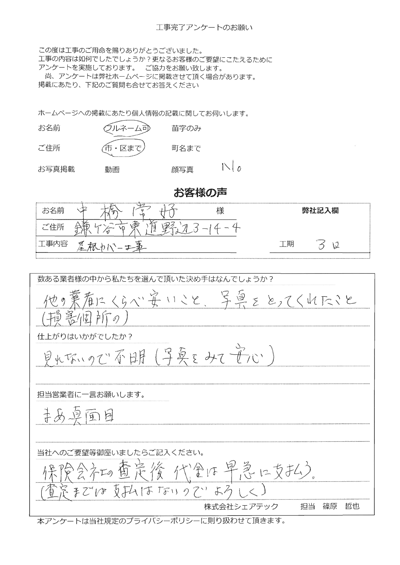 工事完了アンケートのお願い
この度は工事のご用命を賜りありがとうございました。
工事の内容は如何でしたでしょうか?更なるお客様のご要望にこたえるために
アンケートを実施しております。 ご協力をお願い致します。
尚、アンケートは弊社ホームページに掲載させて頂く場合があります。
掲載にあたり、下記のご質問も合せてお答えください。
ホームページへの掲載にあたり個人情報の記載に関してお伺いします。
お名前 フルネーム可 苗字のみ
ご住所 市・区まで 町名まで
お写真掲載 動画 顔写真 No
お客様の声
お名前 中 常好 様 弊社記入欄
ご住所 鎌ヶ谷市東道野辺3-14-4
工事内容 屋根カバー工事 工期 3日
数ある業者様の中から私たちを選んで頂いた決め手はなんでしょうか?
他の業者にくらべ安いこと、写真をとってくれたこと
(損害個所の)
仕上がりはいかがでしたか?
見れないので不明(写真をみて安心)
担当営業者に一言お願いします。
まあ真面目
当社へのご要望等御座いましたらご記入ください。
保険会社の査定後 代金は早急に支払う。
(査定までは支払はないのでよろしく)
株式会社シェアテック 担当 篠原 哲也
本アンケートは当社規定のプライバシーポリシーに則り扱わせて頂きます。